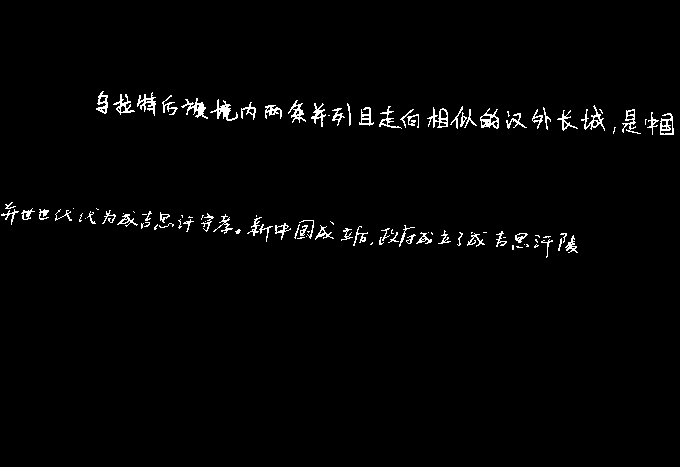 乌拉特后旗境内两条并列且走向相似的汉外长城,是中国
并世世代代为成吉思汗守孝。新中国成立后,政府成立了成吉思汗陵